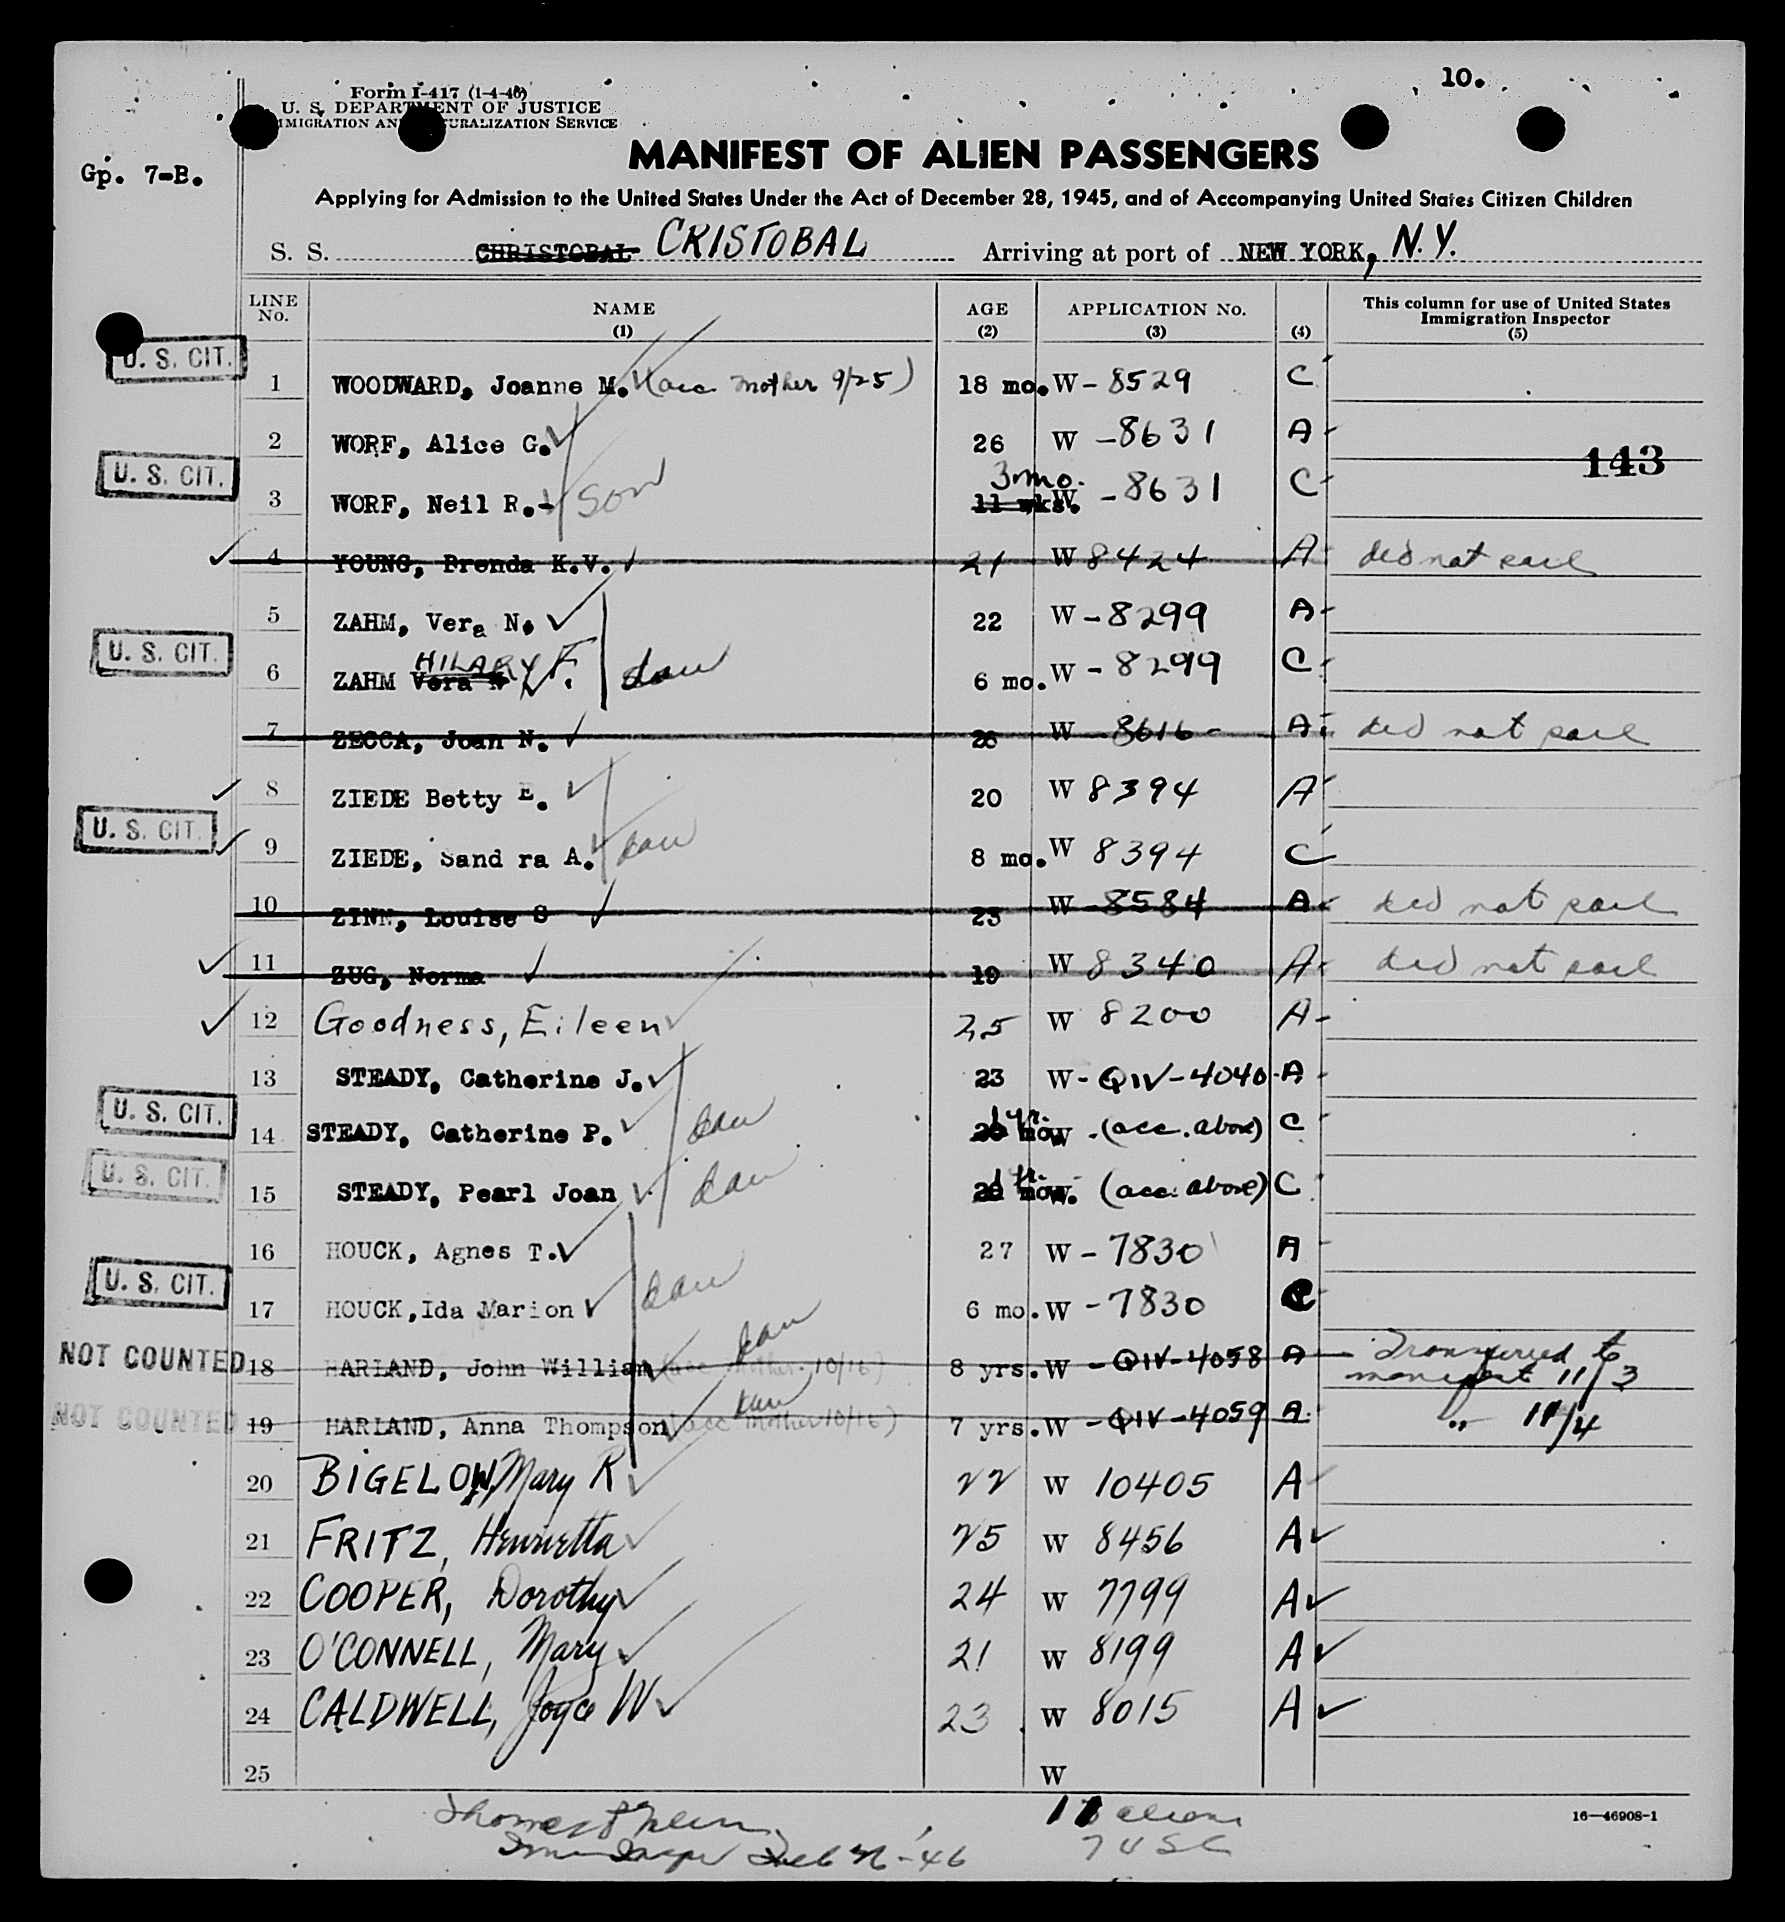 10.
Form I-417 (1-4-46)
U. S. DEPARTMENT OF JUSTICE
IMMIGRATION AND NATURALIZATION SERVICE
Gp. 7-B.
MANIFEST OF ALIEN PASSENGERS
Applying for Admission to the United States Under the Act of December 28, 1945, and of Accompanying United States Citizen Children
S. S. CHRISTOBAL CRISTOBAL Arriving at port of NEW YORK, N.Y.
LINE No. NAME (1) AGE (2) APPLICATION No. (3) (4) This column for use of United States Immigration Inspector (5)
U. S. CIT. 1 WOODWARD, Joanne M. (acc mother 9/25) 18 mo. W - 8529 C
2 WORF, Alice G. 26 W - 8631 A
143
U. S. CIT. 3 WORF, Neil R. son 11 wks. 3 mo. W - 8631 C
4 YOUNG, Brenda K.V. 21 W 8424 A did not sail
5 ZAHM, Vera N. 22 W - 8299 A
U. S. CIT. 6 ZAHM Vera N HILARY F. dau 6 mo. W - 8299 C
7 ZECCA, Joan N. 26 W - 8616 - A did not sail
8 ZIEDE Betty E. 20 W 8394 A
U. S. CIT. 9 ZIEDE, Sand ra A. dau 8 mo. W 8394 C
10 ZINN, Louise S 23 W - 8584 A did not sail
11 ZUG, Norma 19 W 8340 A did not sail
12 Goodness, Eileen 25 W 8200 A
13 STEADY, Catherine J. 23 W - QIV - 4040 - A
U. S. CIT. 14 STEADY, Catherine P. dau 20 mo. 1 yr. W . (acc. above) C
U. S. CIT. 15 STEADY, Pearl Joan dau 20 mo. 1 yr. W. (acc. above) C
16 HOUCK, Agnes T. 27 W - 7830 A
U. S. CIT. 17 HOUCK, Ida Marion dau 6 mo. W - 7830 C
NOT COUNTED 18 HARLAND, John William (acc mother 10/16) dau 8 yrs. W - QIV - 4058 A Transferred to manifest 11/3
NOT COUNTED 19 HARLAND, Anna Thompson (acc mother 10/16) dau 7 yrs. W - QIV - 4059 A " 11/4
20 BIGELOW, Mary R 22 W 10405 A
21 FRITZ, Henrietta 25 W 8456 A
22 COOPER, Dorothy 24 W 7799 A
23 O'CONNELL, Mary 21 W 8199 A
24 CALDWELL, Joyce W 23 W 8015 A
25 W
Thomas aliens
Feb - 46 7 USC
16—46908-1